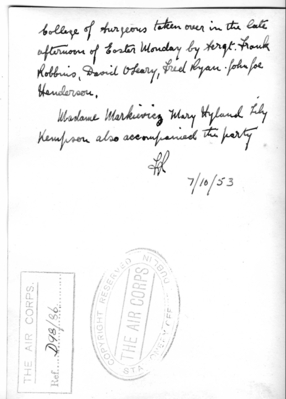 College of Surgeons taken over in the late
afternoon of Easter Monday by Sergt. Frank
Robbins, David O'Leary, Fred Ryan. John Joe
Henderson.
Madame Markiwicz Mary Hyland Lily
Kempson also accompanied the party
7/10/53
THE AIR CORPS.
Ref. D98/86
COPYRIGHT RESERVED
THE AIR CORPS
DUBLIN